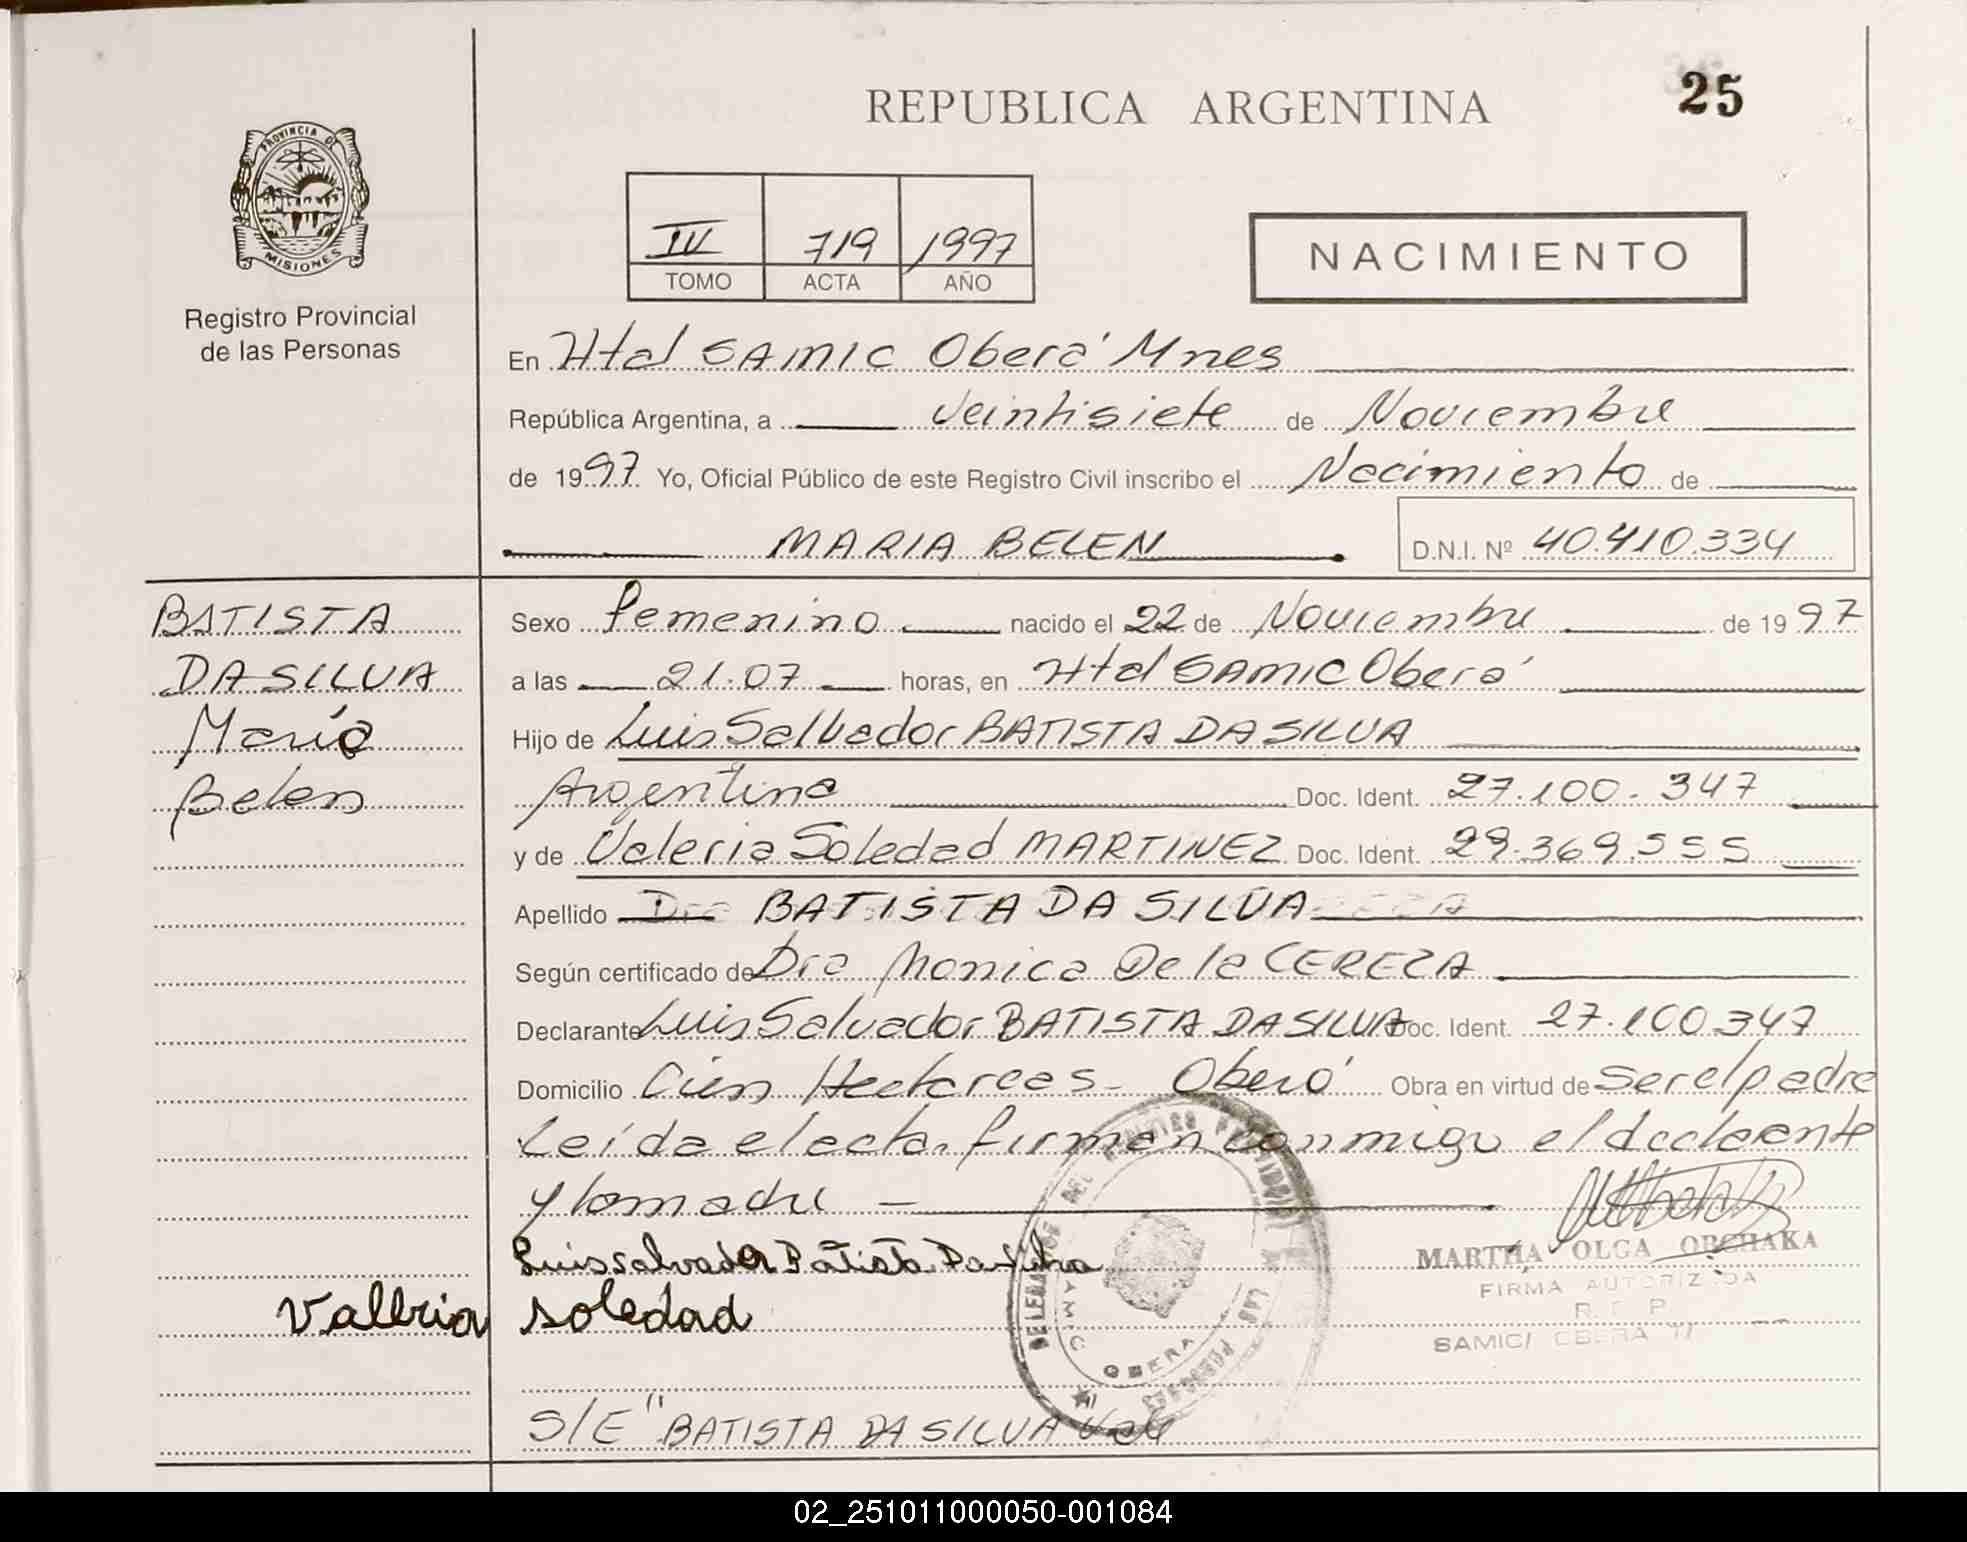 REPUBLICA ARGENTINA
25
PROVINCIA DE
MISIONES
Registro Provincial
de las Personas
IV 719 1997
TOMO ACTA AÑO
NACIMIENTO
En Htal SAMIC Oberá Mnes
República Argentina, a Veintisiete de Noviembre
de 1997 Yo, Oficial Público de este Registro Civil inscribo el Nacimiento de
MARIA BELEN D.N.I. Nº 40.410.334
BATISTA
DA SILVA
María
Belen
Sexo femenino nacido el 22 de Noviembre de 1997
a las 21.07 horas, en Htal SAMIC Oberá
Hijo de Luis Salbador BATISTA DA SILVA
Argentina Doc. Ident. 27.100.347
y de Valeria Soledad MARTINEZ Doc. Ident. 29.369.555
Apellido Dra BATISTA DA SILVA
Según certificado de Dra Monica De la CEREZA
Declarante Luis Salvador BATISTA DA SILVA Doc. Ident. 27.100.347
Domicilio Cien Hectareas - Oberá Obra en virtud de ser el padre
Leída el acta, firman conmigo el declarante
y la madre
Luis salvador Batista Da silva
MARTHA OLGA ORCHAKA
FIRMA AUTORIZADA
R. P.
SAMIC/ OBERA
Valeria soledad
DE LAS PERSONAS
SAMIC
OBERA
S/E "BATISTA DA SILVA Vale
02_251011000050-001084